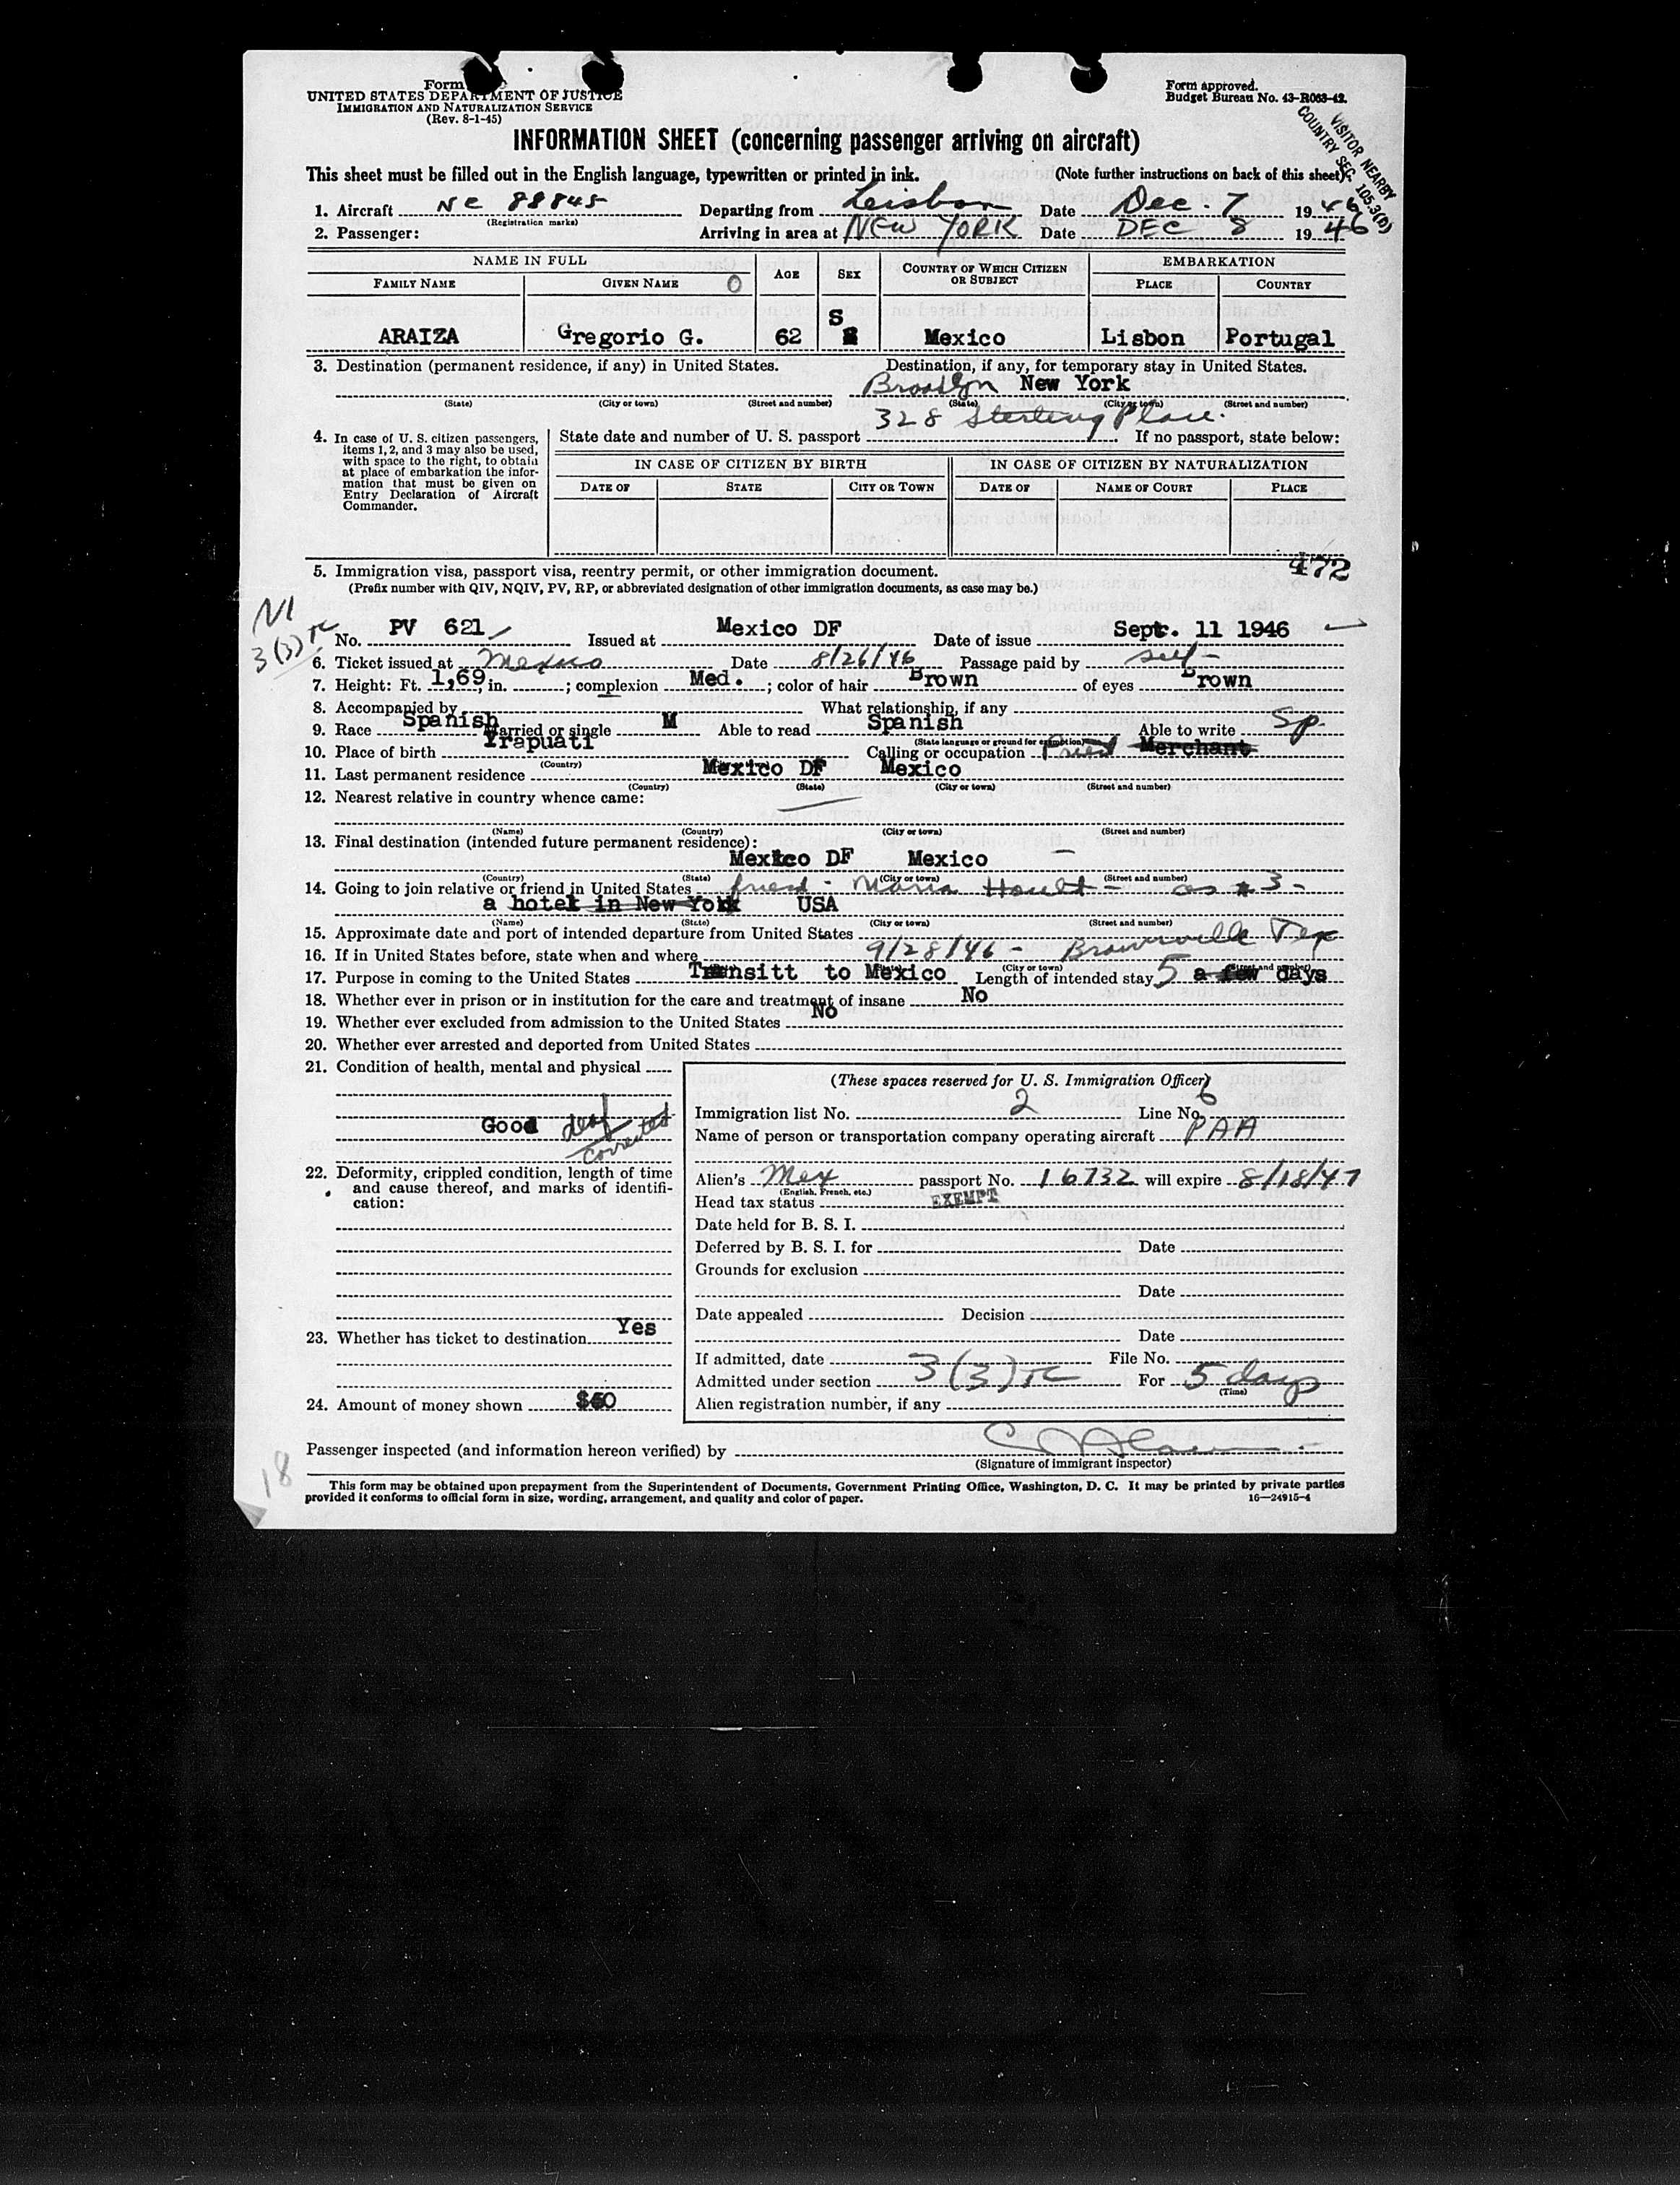 Form
UNITED STATES DEPARTMENT OF JUSTICE
IMMIGRATION AND NATURALIZATION SERVICE
(Rev. 8-1-45)
Form approved.
Budget Bureau No. 43-R063-42.
VISITOR NEARBY
COUNTRY SEC. 105.3(B)
INFORMATION SHEET (concerning passenger arriving on aircraft)
This sheet must be filled out in the English language, typewritten or printed in ink. (Note further instructions on back of this sheet)
1. Aircraft NC 88845 Departing from Leisbon Date Dec. 7 1946
(Registration marks)
2. Passenger: Arriving in area at NEW YORK Date DEC 8 1946
NAME IN FULL AGE SEX COUNTRY OF WHICH CITIZEN OR SUBJECT EMBARKATION
FAMILY NAME GIVEN NAME PLACE COUNTRY
S
ARAIZA Gregorio G. 62 Mexico Lisbon Portugal
3. Destination (permanent residence, if any) in United States. Destination, if any, for temporary stay in United States.
Brooklyn New York
(State) (City or town) (Street and number) (State) (City or town) (Street and number)
328 Sterling Place.
4. In case of U. S. citizen passengers, items 1, 2, and 3 may also be used, with space to the right, to obtain at place of embarkation the information that must be given on Entry Declaration of Aircraft Commander.
State date and number of U. S. passport If no passport, state below:
IN CASE OF CITIZEN BY BIRTH IN CASE OF CITIZEN BY NATURALIZATION
DATE OF STATE CITY OR TOWN DATE OF NAME OF COURT PLACE
472
5. Immigration visa, passport visa, reentry permit, or other immigration document.
(Prefix number with QIV, NQIV, PV, RP, or abbreviated designation of other immigration documents, as case may be.)
NI
3(3) TC
No. PV 621 Issued at Mexico DF Date of issue Sept. 11 1946
6. Ticket issued at Mexico Date 8/26/46 Passage paid by self-
7. Height: Ft. 1,69, in. ; complexion Med. ; color of hair Brown of eyes Brown
8. Accompanied by What relationship, if any
9. Race Spanish Married or single M Able to read Spanish Able to write Sp.
(State language or ground for exemption)
10. Place of birth Yrapuati Calling or occupation Priest Merchant
(Country)
11. Last permanent residence Mexico DF Mexico
(Country) (State) (City or town) (Street and number)
12. Nearest relative in country whence came:
(Name) (Country) (City or town) (Street and number)
13. Final destination (intended future permanent residence):
Mexico DF Mexico
(Country) (State) (City or town) (Street and number)
14. Going to join relative or friend in United States friend - Maria Hoult - as # 3 -
a hotel in New York USA
(Name) (State) (City or town) (Street and number)
15. Approximate date and port of intended departure from United States
16. If in United States before, state when and where 9/28/46 - Brownsville Tex
(City or town) (Street and number)
17. Purpose in coming to the United States Transitt to Mexico Length of intended stay 5 a few days
18. Whether ever in prison or in institution for the care and treatment of insane No
19. Whether ever excluded from admission to the United States No
20. Whether ever arrested and deported from United States
21. Condition of health, mental and physical
Good deaf
corrected
22. Deformity, crippled condition, length of time and cause thereof, and marks of identification:
23. Whether has ticket to destination Yes
24. Amount of money shown
(These spaces reserved for U. S. Immigration Officer)
Immigration list No. 2 Line No. 6
Name of person or transportation company operating aircraft PAA
Alien's Mex passport No. 16732 will expire 8/18/47
(English, French, etc.)
Head tax status EXEMPT
Date held for B. S. I.
Deferred by B. S. I. for Date
Grounds for exclusion
Date
Date appealed Decision
Date
If admitted, date File No.
Admitted under section 3(3) TC For 5 days
(Time)
Alien registration number, if any
Passenger inspected (and information hereon verified) by
(Signature of immigrant inspector)
18
This form may be obtained upon prepayment from the Superintendent of Documents, Government Printing Office, Washington, D. C. It may be printed by private parties
provided it conforms to official form in size, wording, arrangement, and quality and color of paper. 16—24915-4